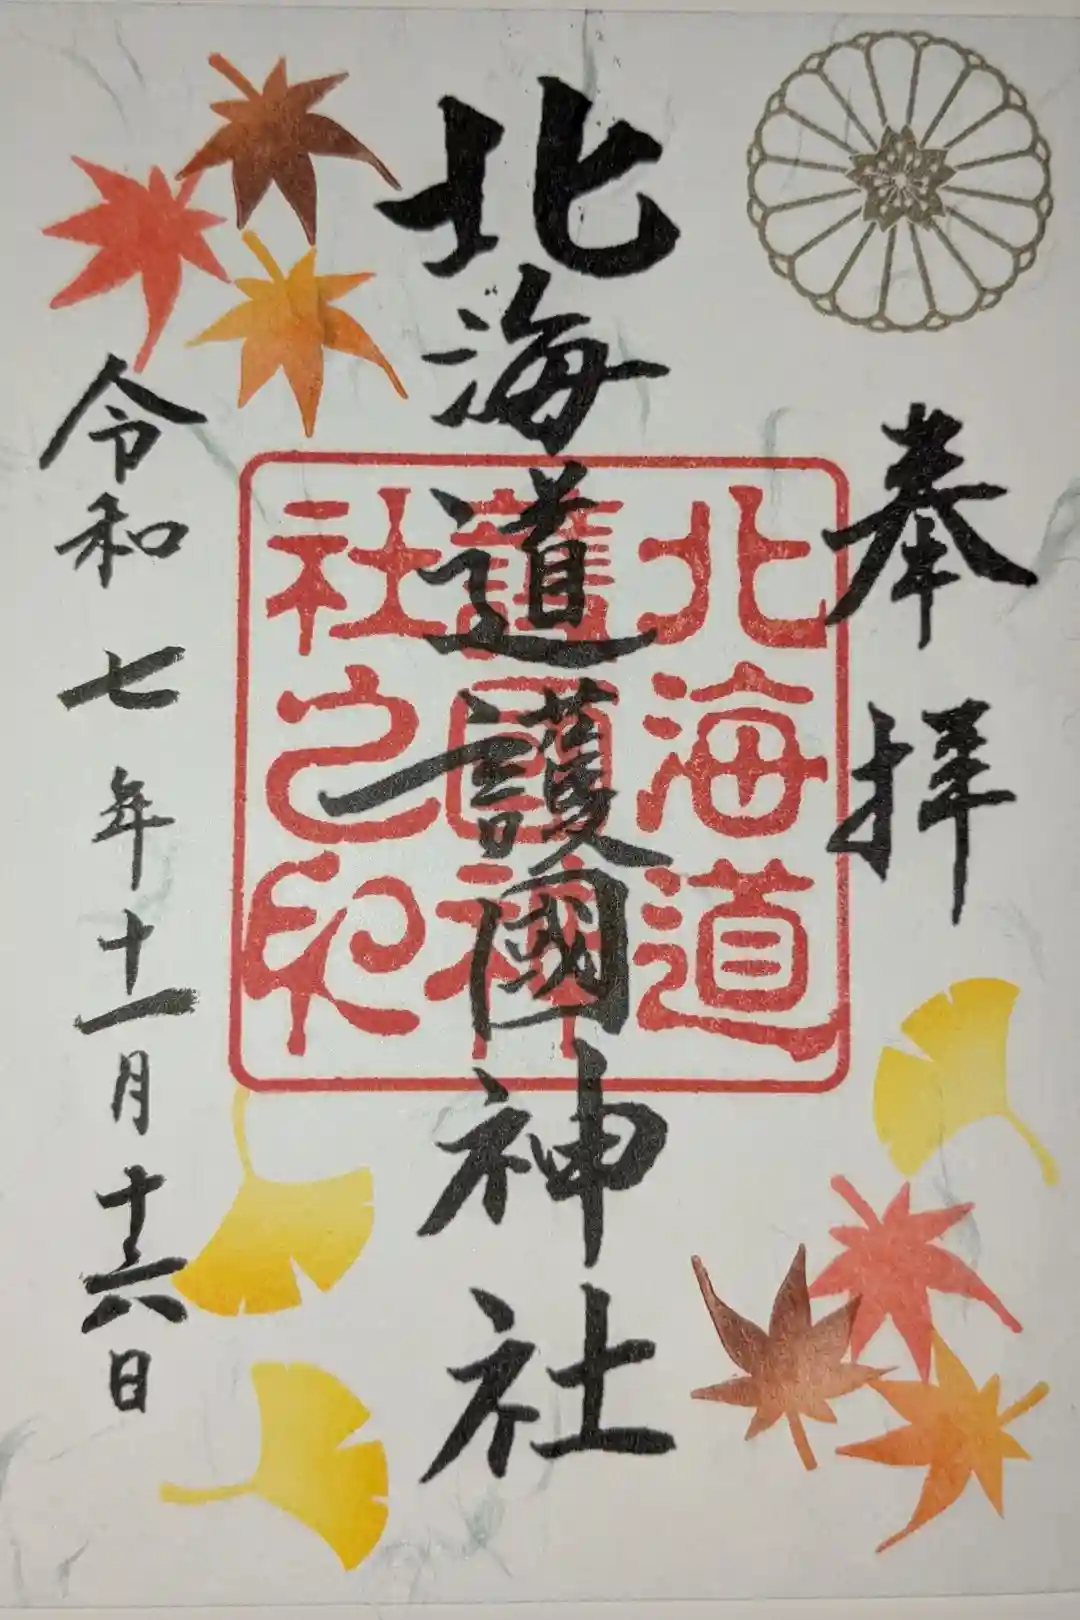 奉拝
北海道護國神社
北海道
護國神
社之印
令和七年十一月十六日